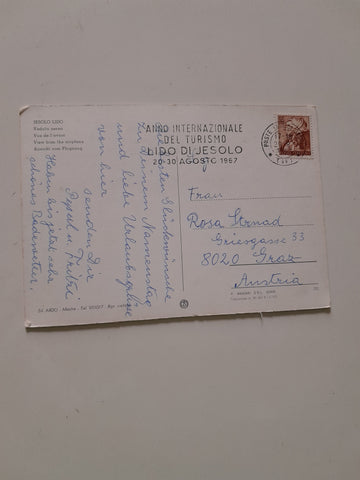 JESOLO LIDO
Veduta aerea
Vue de l'avion
View from the airplane
Ansicht vom Flugzeug
ANNO INTERNAZIONALE
DEL TURISMO
LIDO DI JESOLO
20-30 AGOSTO 1967
POSTE
Herzlichsten Glückwünsche
zu Deinem Namenstag
und liebe Urlaubsgrüße
von hier
senden Dir
Pepel u. Friedri
Haben bis jetzt sehr
schönes Badewetter.
Frau
Rosa Strnad
Griesgasse 33
8020 Graz
Austria